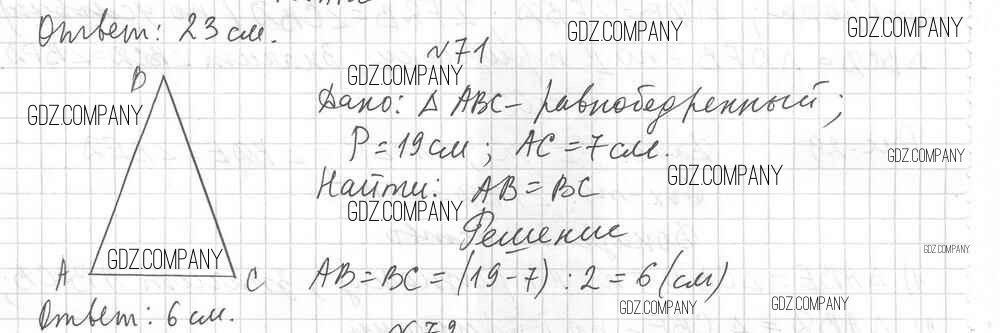 Ответ: 23 см.
GDZ.COMPANY
GDZ.COMPANY
№71
GDZ.COMPANY
B
GDZ.COMPANY
Дано: Δ ABC – равнобедренный;
P = 19 см ; AC = 7 см.
GDZ.COMPANY
GDZ.COMPANY
Найти: AB = BC
GDZ.COMPANY
Решение
GDZ.COMPANY
GDZ.COMPANY
A
C
AB = BC = (19 – 7) : 2 = 6 (см)
GDZ.COMPANY
GDZ.COMPANY
Ответ: 6 см.